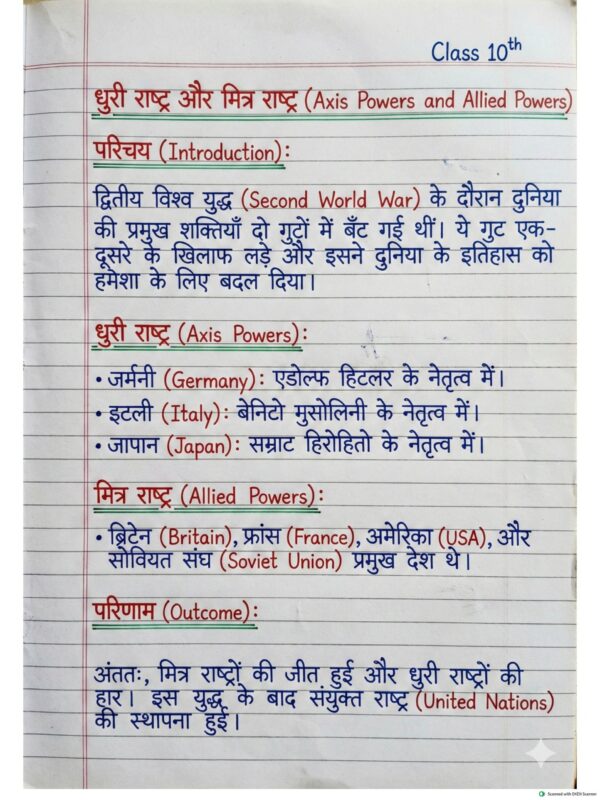 Class 10th
धुरी राष्ट्र और मित्र राष्ट्र (Axis Powers and Allied Powers)
परिचय (Introduction):
द्वितीय विश्व युद्ध (Second World War) के दौरान दुनिया
की प्रमुख शक्तियाँ दो गुटों में बँट गई थीं। ये गुट एक-
दूसरे के खिलाफ लड़े और इसने दुनिया के इतिहास को
हमेशा के लिए बदल दिया।
धुरी राष्ट्र (Axis Powers):
• जर्मनी (Germany): एडोल्फ हिटलर के नेतृत्व में।
• इटली (Italy): बेनिटो मुसोलिनी के नेतृत्व में।
• जापान (Japan): सम्राट हिरोहितो के नेतृत्व में।
मित्र राष्ट्र (Allied Powers):
• ब्रिटेन (Britain), फ्रांस (France), अमेरिका (USA), और
सोवियत संघ (Soviet Union) प्रमुख देश थे।
परिणाम (Outcome):
अंततः, मित्र राष्ट्रों की जीत हुई और धुरी राष्ट्रों की
हार। इस युद्ध के बाद संयुक्त राष्ट्र (United Nations)
की स्थापना हुई।
Scanned with OKEN Scanner